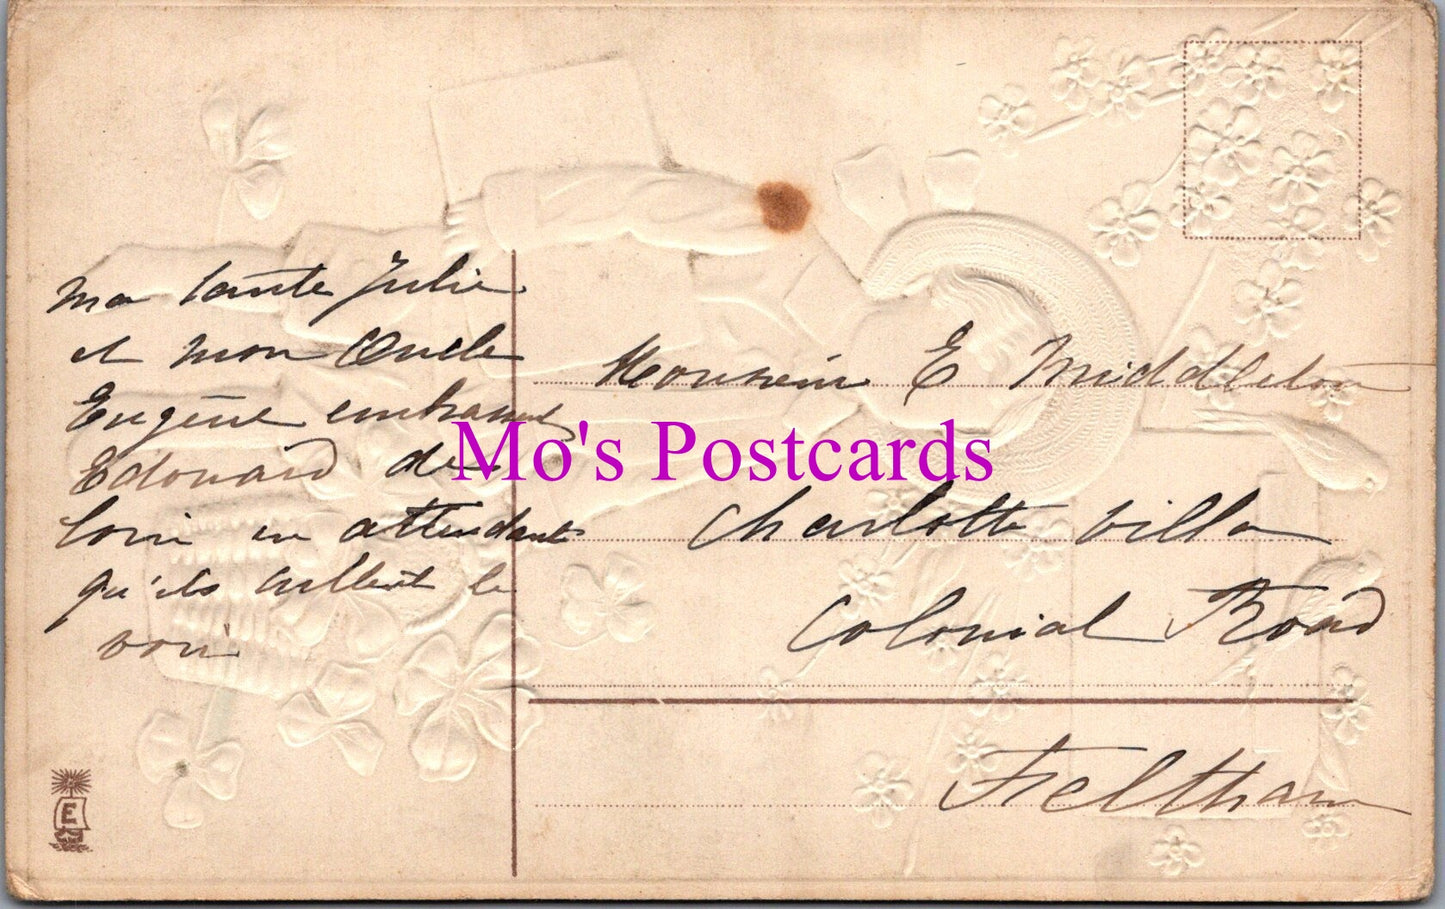 ma tante Julie
et mon Oncle
Eugène embrassent
Edouard de
loin en attendant
qu'ils aillent le
voir
Monsieur E Middleton
Charlotte Villa
Colonial Road
Feltham
Mo's Postcards
E